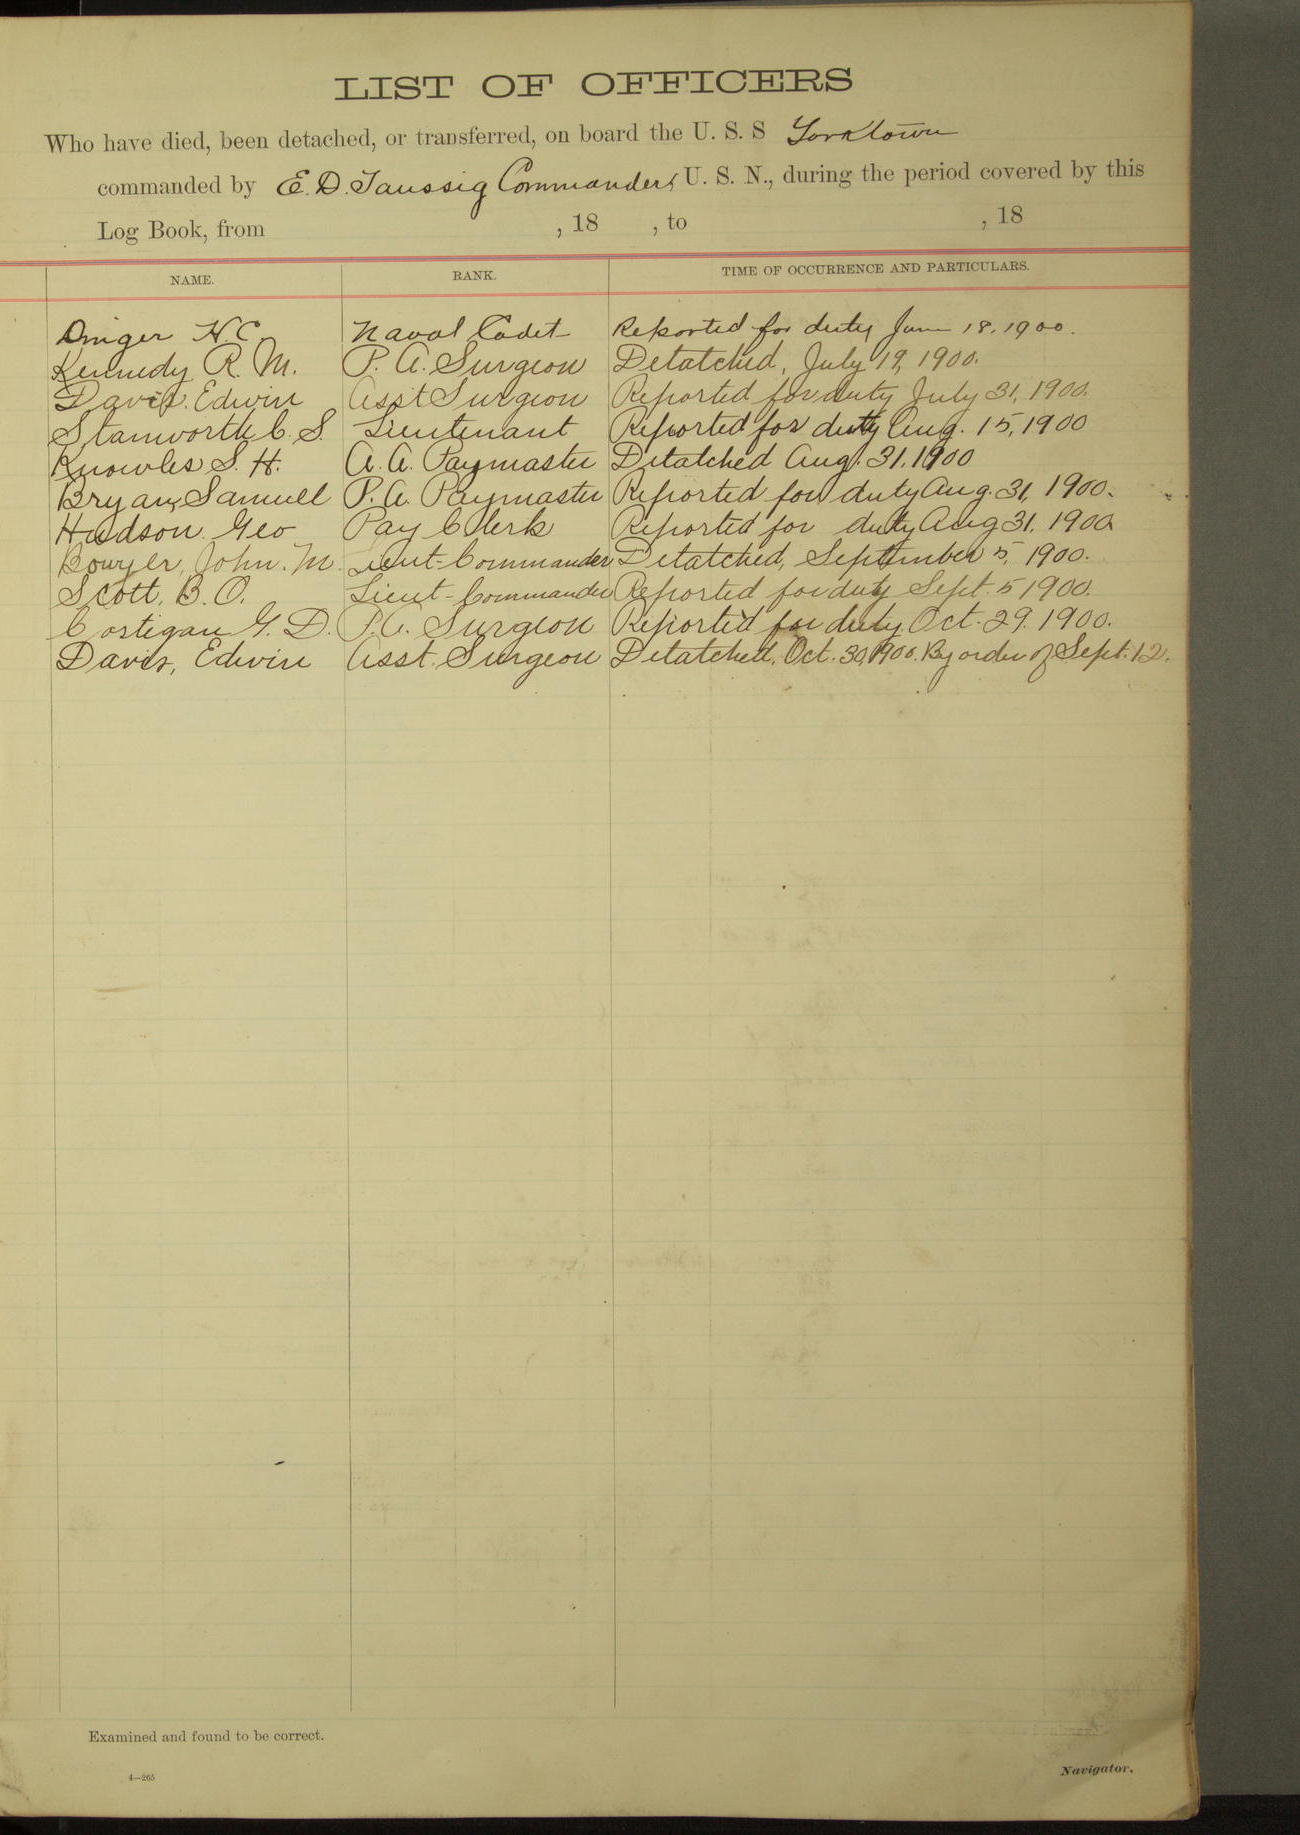 LIST OF OFFICERS
Who have died, been detached, or transferred, on board the U. S. S Yorktown
commanded by E. D. Taussig Commander, U. S. N., during the period covered by this
Log Book, from , 18 , to , 18
NAME. RANK. TIME OF OCCURRENCE AND PARTICULARS.
Dinger H. C. Naval Cadet Reported for duty June 18, 1900.
Kennedy R. M. P. A. Surgeon Detatched, July 19, 1900.
Davis, Edwin Asst Surgeon Reported for duty July 31, 1900.
Stanworth C. S. Lieutenant Reported for duty Aug. 15, 1900
Knowles S. H. A. A. Paymaster Detatched Aug. 31, 1900
Bryan, Samuel P. A. Paymaster Reported for duty Aug. 31, 1900.
Hudson Geo Pay Clerk Reported for duty Aug 31, 1900
Bowyer, John. M. Lieut-Commander Detatched, September 5, 1900.
Scott, B. O. Lieut-Commander Reported for duty Sept. 5 1900.
Costigan G. D. P. A. Surgeon Reported for duty Oct. 29. 1900.
Davis, Edwin Asst. Surgeon Detatched, Oct. 30, 1900. By order of Sept. 12.
Examined and found to be correct.
4—265
Navigator.